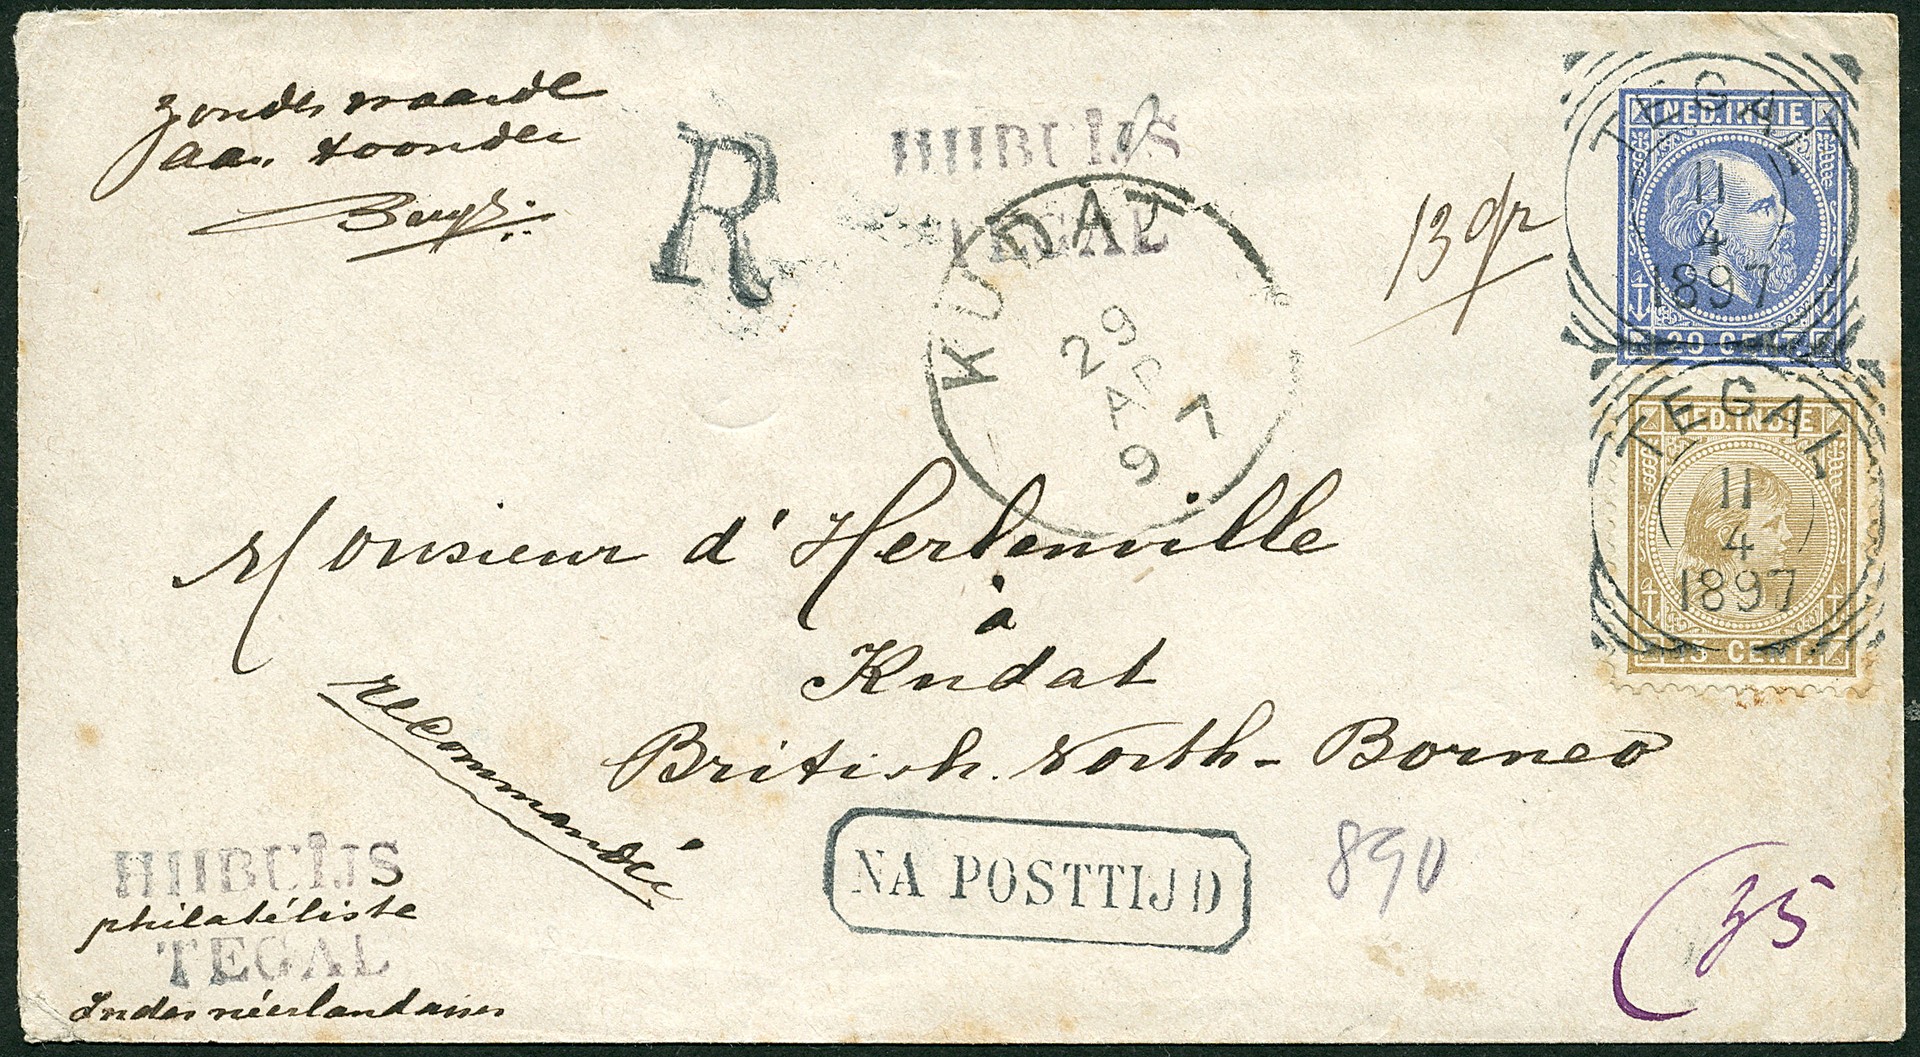 zonder waarde
aan toonder
R
HIIBUIJS
TEGAL
KUDAT
29
AP
97
13 gr
NED. INDIE
20 CENT
TEGAL
11
4
1897
NED. INDIE
15 CENT.
TEGAL
11
4
1897
Monsieur d'Herbenville
à
Kudat
British North-Borneo
recommandée
NA POSTTIJD
890
HIIBUIJS
philatéliste
TEGAL
Indes néerlandaises